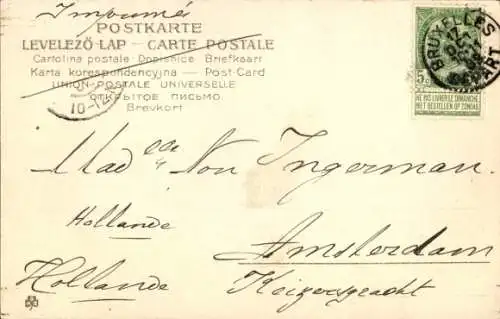 Imprimé
POSTKARTE
LEVELEZŐ-LAP – CARTE POSTALE
Cartolina postale – Dopisnice – Briefkaart
Karta korespondencyjna – Post-Card
UNION POSTALE UNIVERSELLE
ОТКРЫТОЕ ПИСЬМО.
Brevkort
10-12
BRUXELLES
DÉPART
NE PAS LIVRER LE DIMANCHE
NIET BESTELLEN OP ZONDAG
Von Ingerman.
Hollande
Amsterdam
Hollande
Keizersgracht